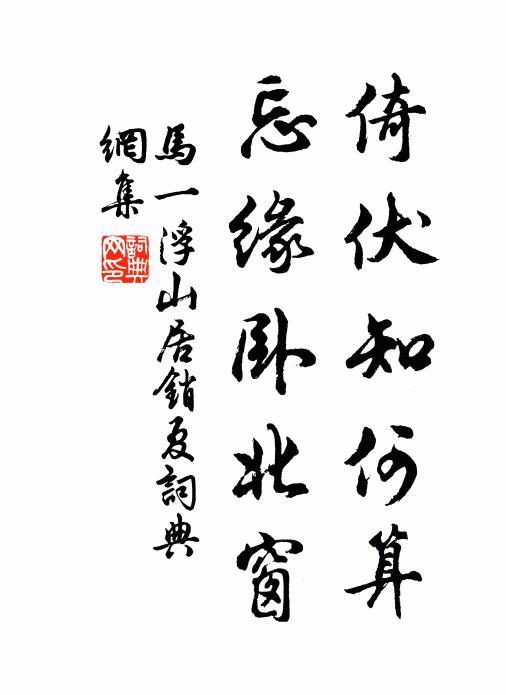 倚伏知何算
忘緣臥北窗
馬一浮山居銷夏詞典
網集
詞典網印